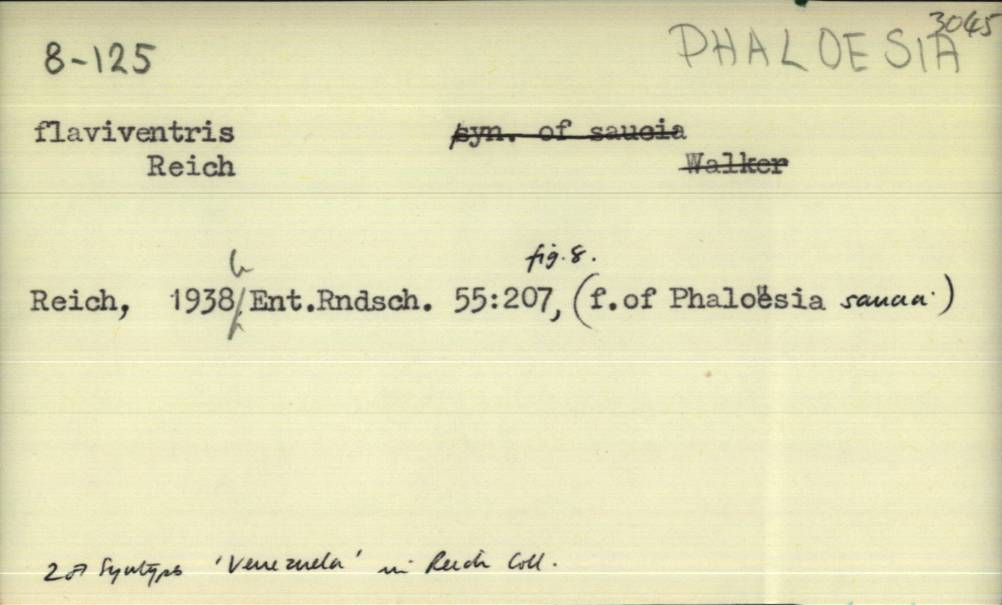 3045
8-125 PHALOESIA
flaviventris syn. of saucia
Reich Walker
b fig. 8.
Reich, 1938, Ent.Rndsch. 55:207, (f.of Phaloësia saucia)
2♂ Syntyps 'Venezuela' in Reich Coll.